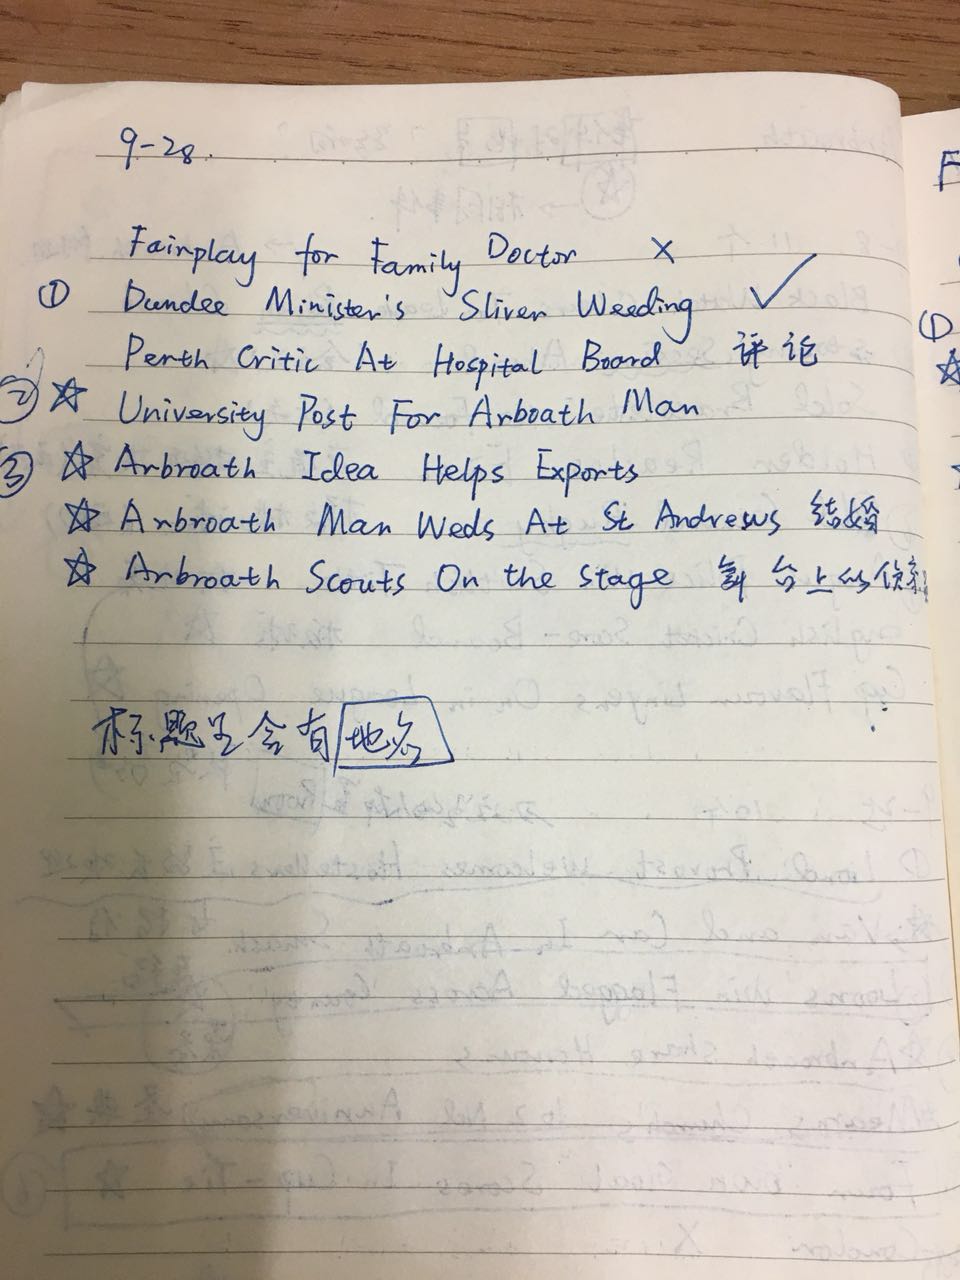 9-28.
Fairplay for Family Doctor X
① Dundee Minister's Sliver Weeding ✓
Perth Critic At Hospital Board 评论
② ☆ University Post For Arboath Man
③ ☆ Arbroath Idea Helps Exports
☆ Arbroath Man Weds At St Andrews 结婚
☆ Arbroath Scouts On the Stage 台上的侦
标题里含有地名
①